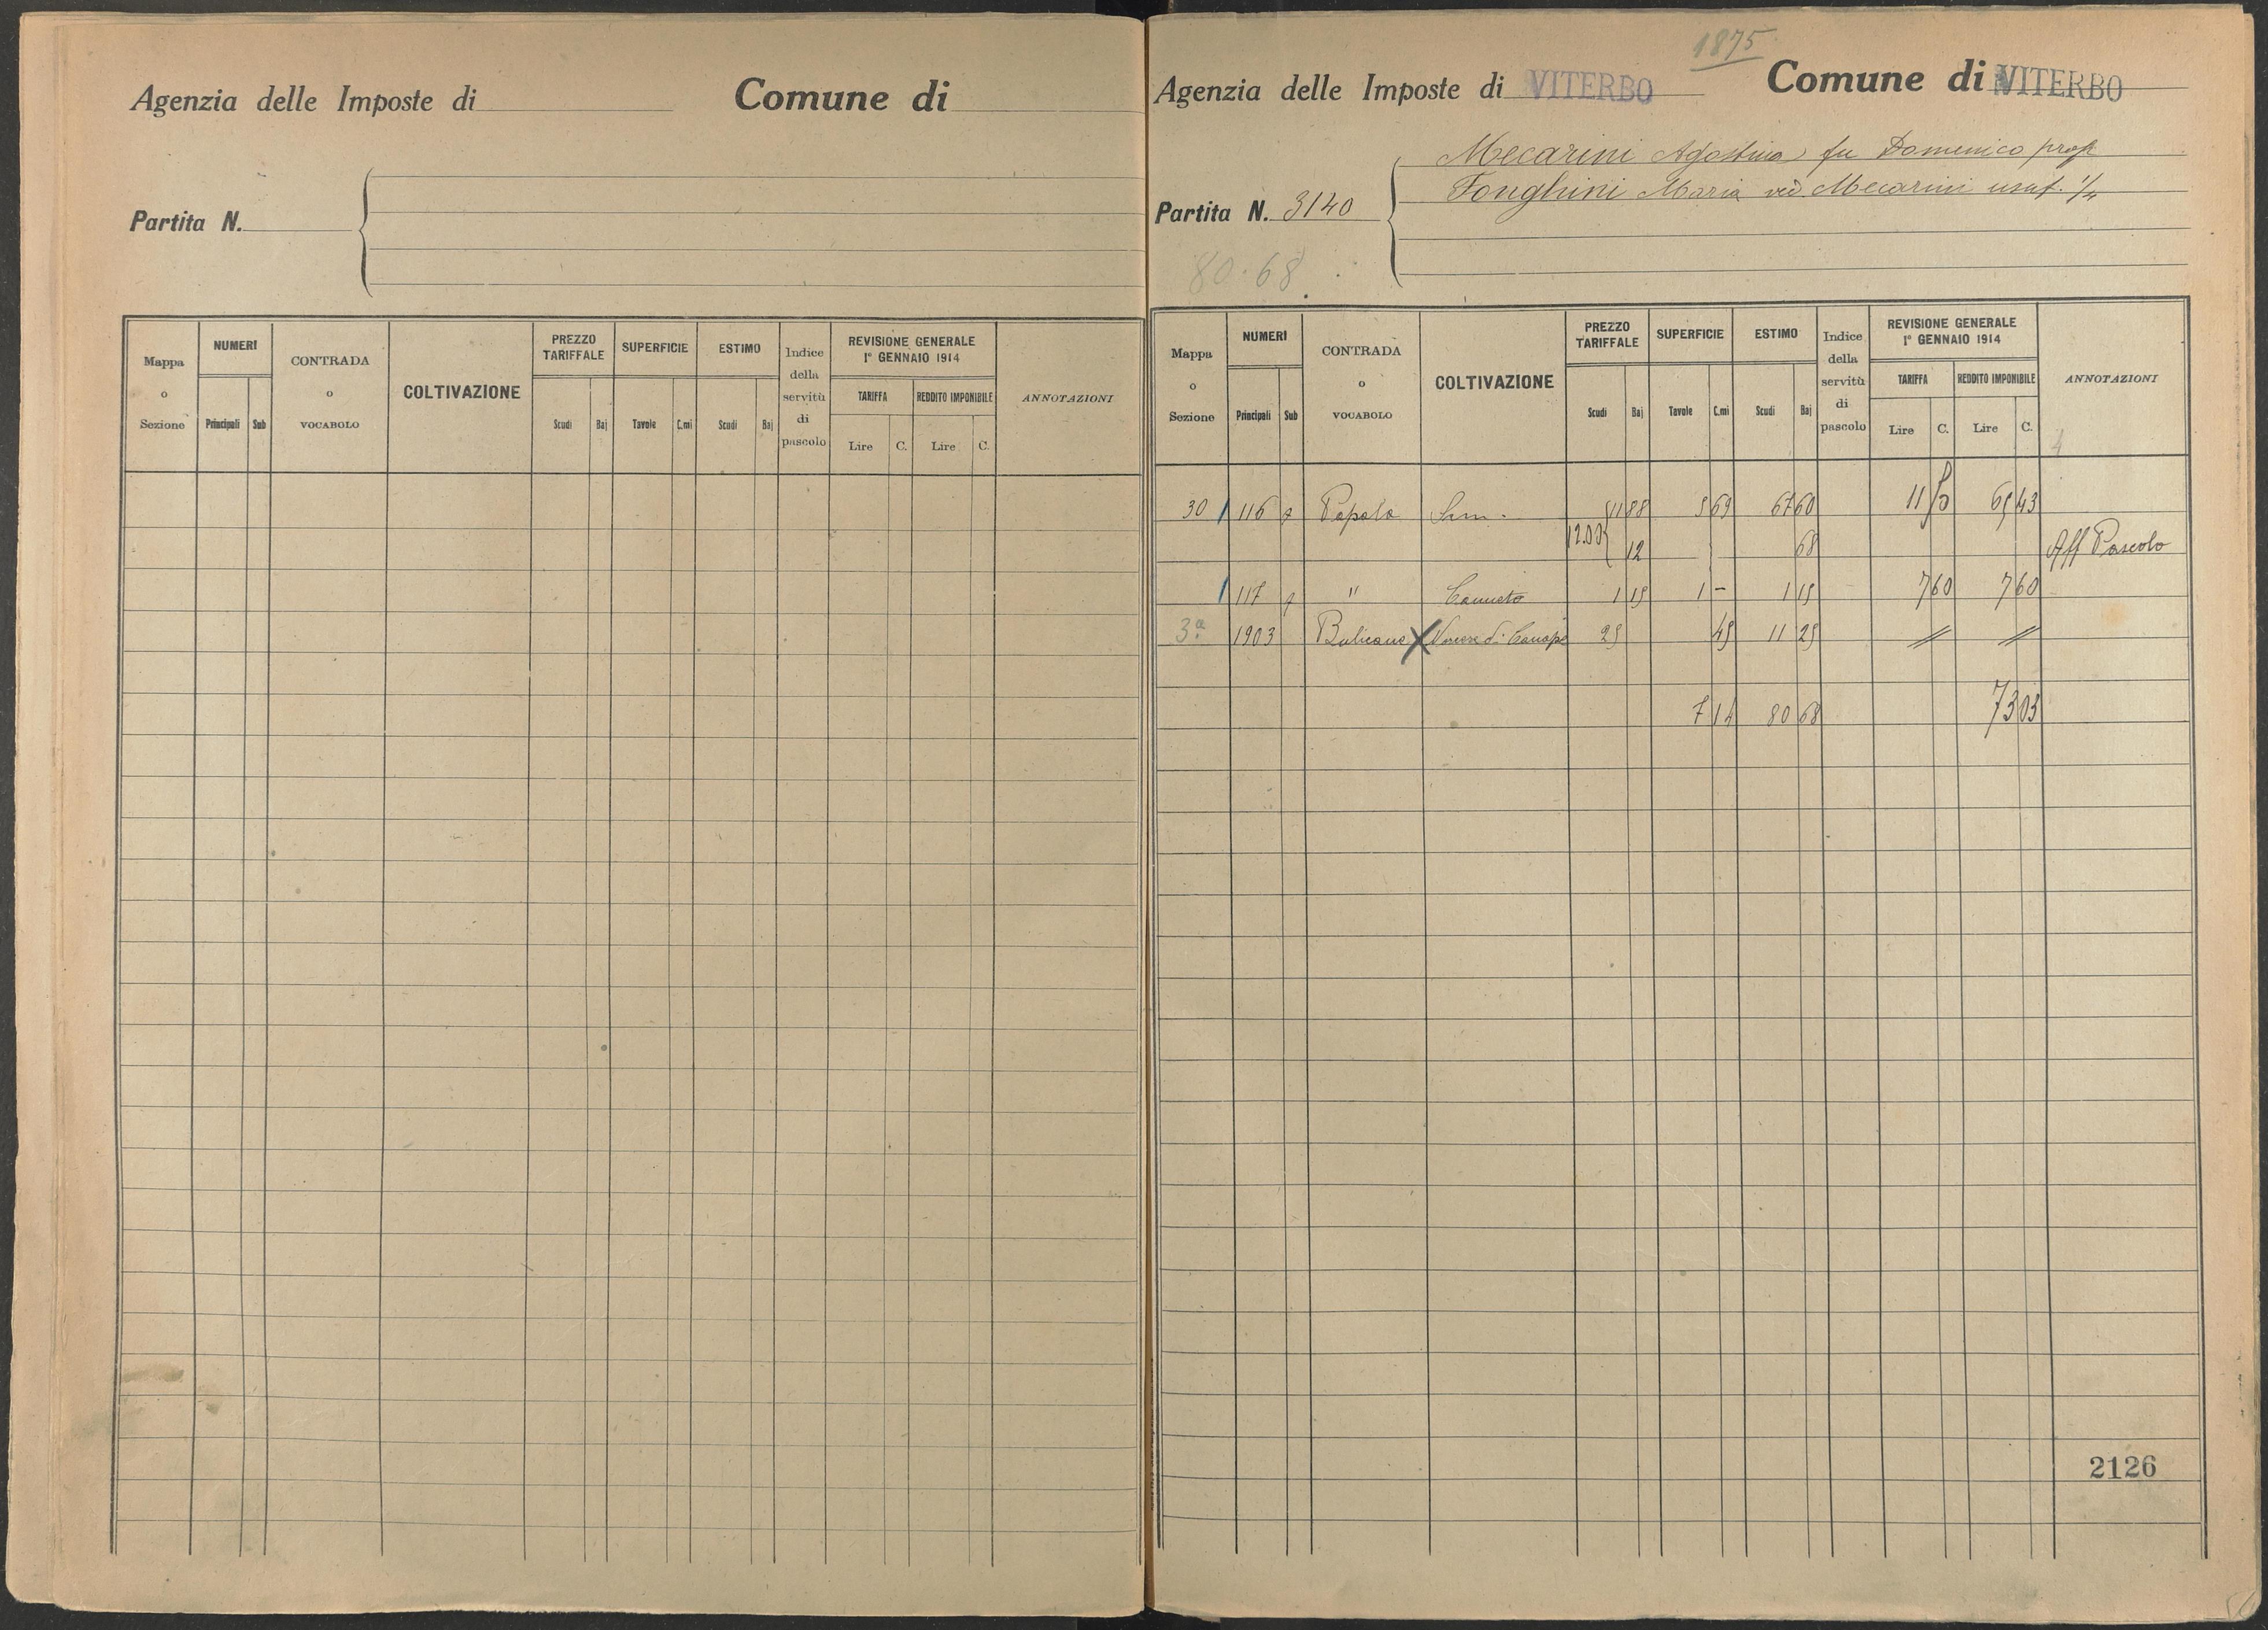 Agenzia delle Imposte di Comune di
Partita N.
Mappa o Sezione NUMERI Principali Sub CONTRADA o VOCABOLO COLTIVAZIONE PREZZO TARIFFALE Scudi Baj SUPERFICIE Tavole C.mi ESTIMO Scudi Baj Indice della servitù di pascolo REVISIONE GENERALE 1° GENNAIO 1914 TARIFFA Lire C. REDDITO IMPONIBILE Lire C. ANNOTAZIONI
1875
Agenzia delle Imposte di VITERBO Comune di VITERBO
Mecarini Agostino fu Domenico prop
Partita N. 3140 Fonghini Maria ved Mecarini usuf. 1/4
80.68
Mappa o Sezione NUMERI Principali Sub CONTRADA o VOCABOLO COLTIVAZIONE PREZZO TARIFFALE Scudi Baj SUPERFICIE Tavole C.mi ESTIMO Scudi Baj Indice della servitù di pascolo REVISIONE GENERALE 1° GENNAIO 1914 TARIFFA Lire C. REDDITO IMPONIBILE Lire C. ANNOTAZIONI
4
30 1 116 Sem. 11 88 5 69 67 60 11 50 65 43
12.00 12 68 Aff Pascolo
1 117 " Canneto 1 15 1 - 1 15 7 60 7 60
3ª 1903 Bulicame X di Canape 25 45 11 25 // //
7 14 80 68 73 03
2126